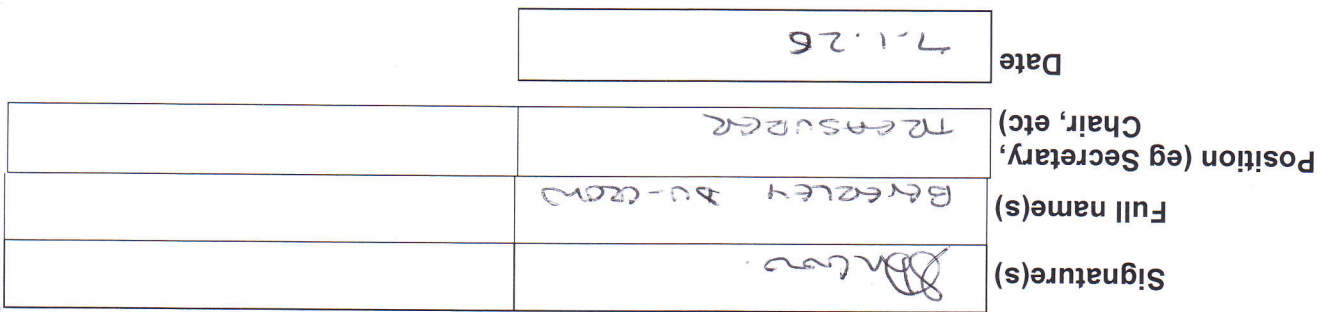 Signature(s)
Full name(s) BEVERLEY DU-CROW
Position (eg Secretary, Chair, etc) TREASURER
Date 7.1.26